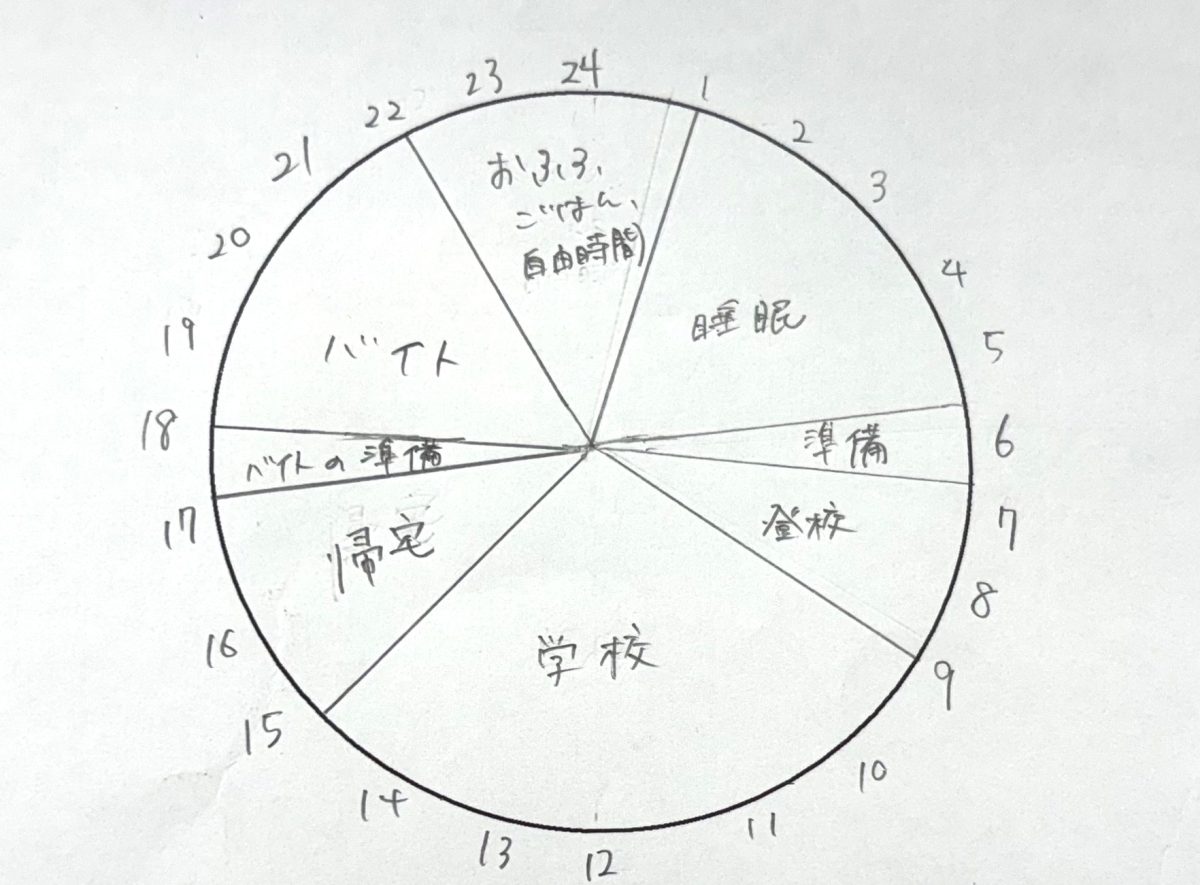 24
1
2
3
4
5
6
7
8
9
10
11
12
13
14
15
16
17
18
19
20
21
22
23
おふろ、
ごはん、
自由時間
睡眠
準備
登校
学校
帰宅
バイトの準備
バイト